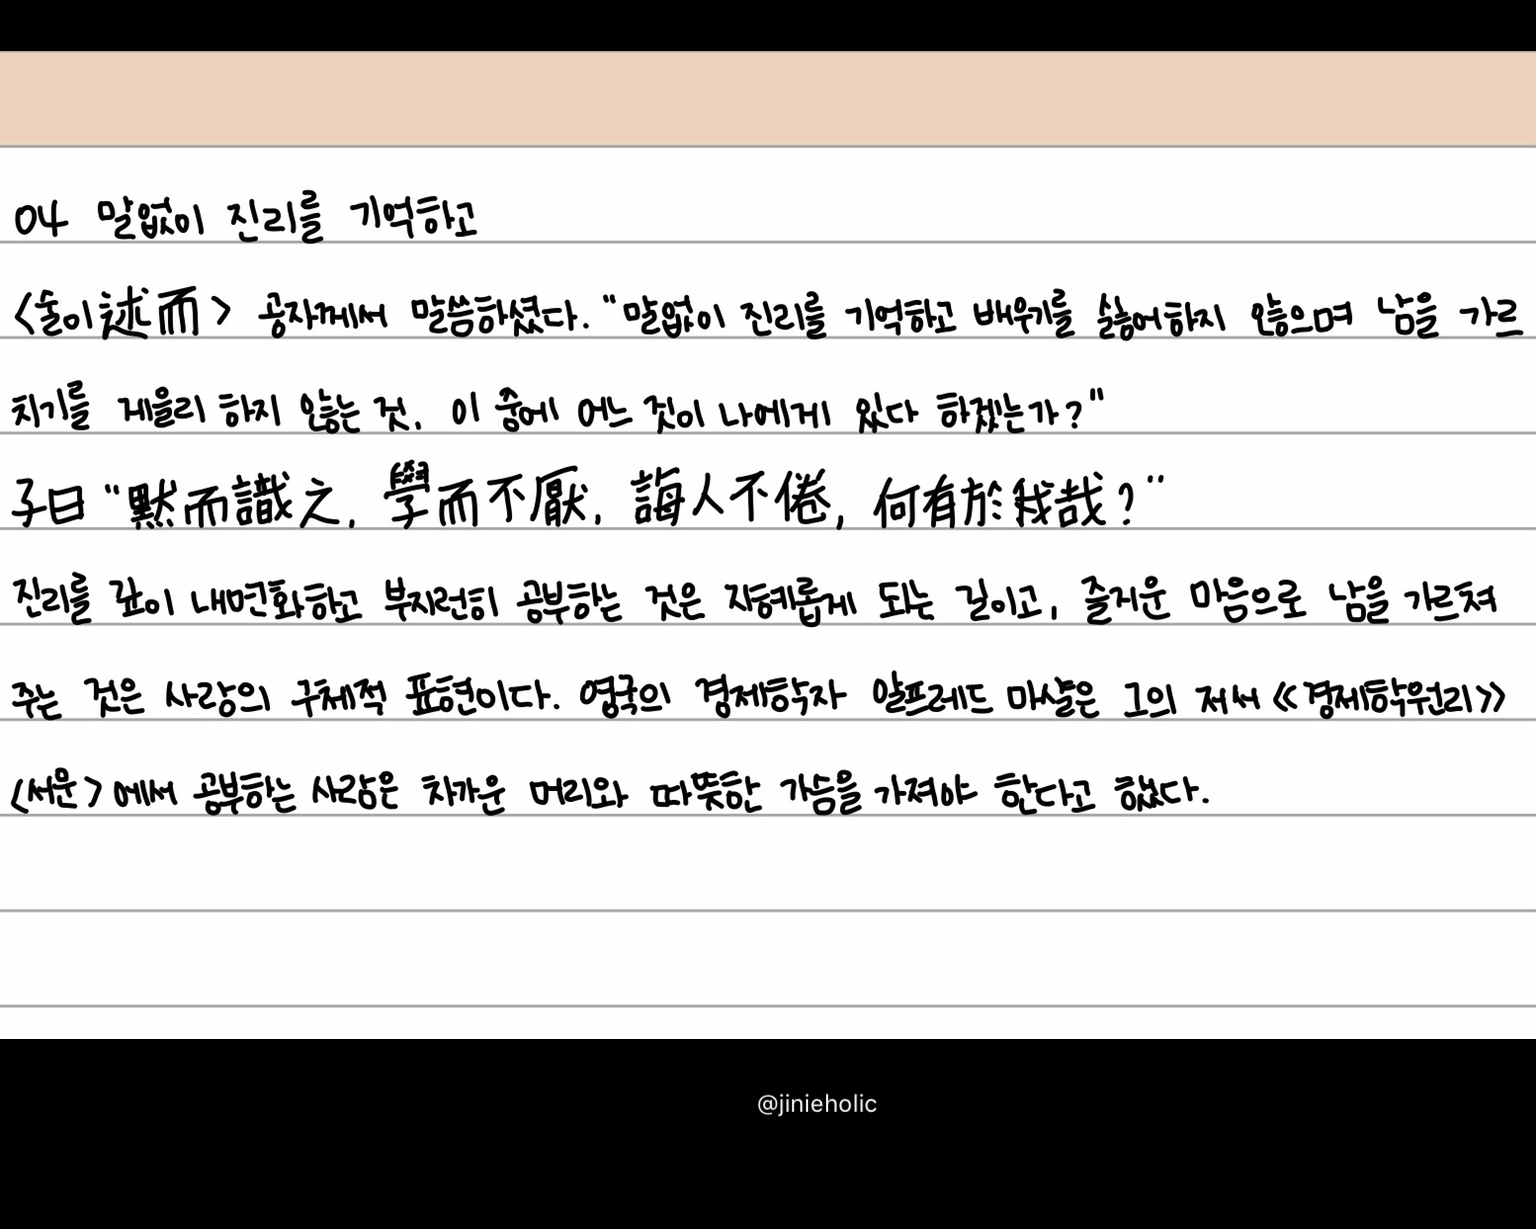 04 말없이 진리를 기억하고
<술이述而> 공자께서 말씀하셨다. "말없이 진리를 기억하고 배우기를 싫어하지 않으며 남을 가르
치기를 게을리 하지 않는 것, 이 중에 어느 것이 나에게 있다 하겠는가?"
子曰 "黙而識之, 學而不厭, 誨人不倦, 何有於我哉?"
진리를 깊이 내면화하고 부지런히 공부하는 것은 지혜롭게 되는 길이고, 즐거운 마음으로 남을 가르쳐
주는 것은 사랑의 구체적 표현이다. 영국의 경제학자 알프레드 마샬은 그의 저서 ≪경제학원리≫
<서문>에서 공부하는 사람은 차가운 머리와 따뜻한 가슴을 가져야 한다고 했다.
@jinieholic